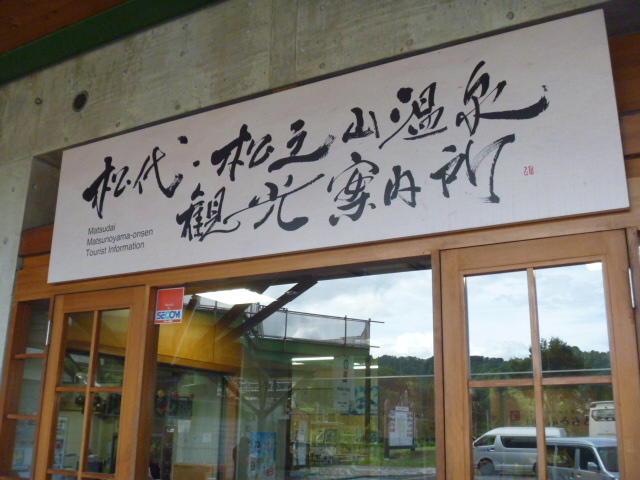 松代・松之山温泉
観光案内所
Matsudai
Matsunoyama-onsen
Tourist Information
SECOM